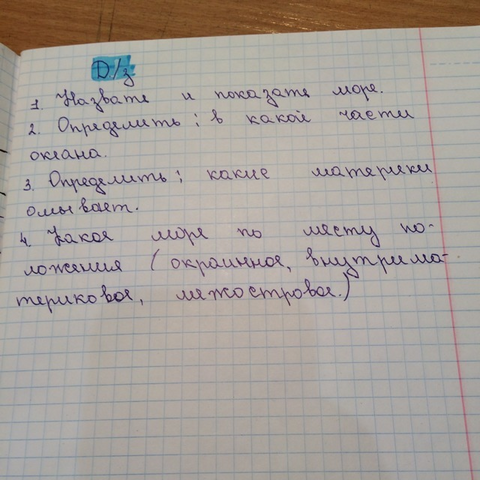 D/з
1. Назвать и показать море.
2. Определить: в какой части
океана.
3. Определить: какие материки
омывает.
4. Какое море по месту по-
ложения (окраинное, внутрима-
териковое, межостровое.)